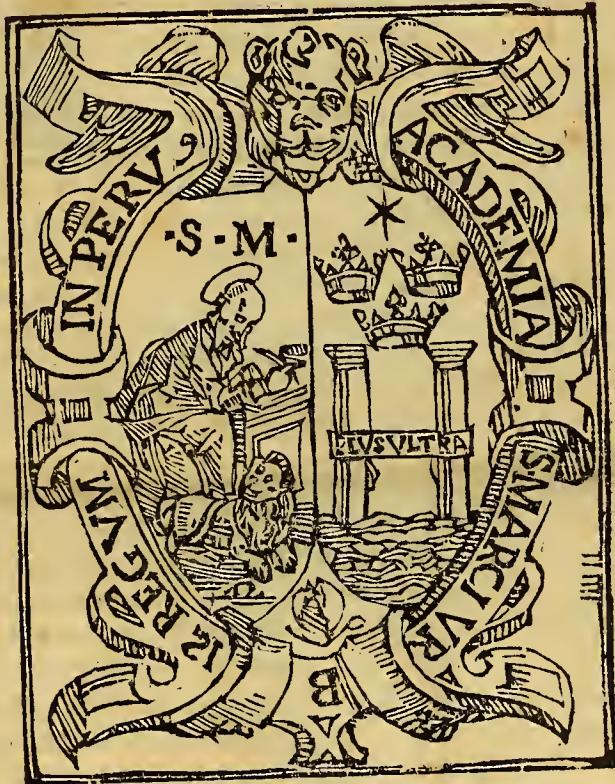 ACADEMIA
SMARCI VR
B
IS REGVM
IN PERV
·S·M·
PLVSVLTRA